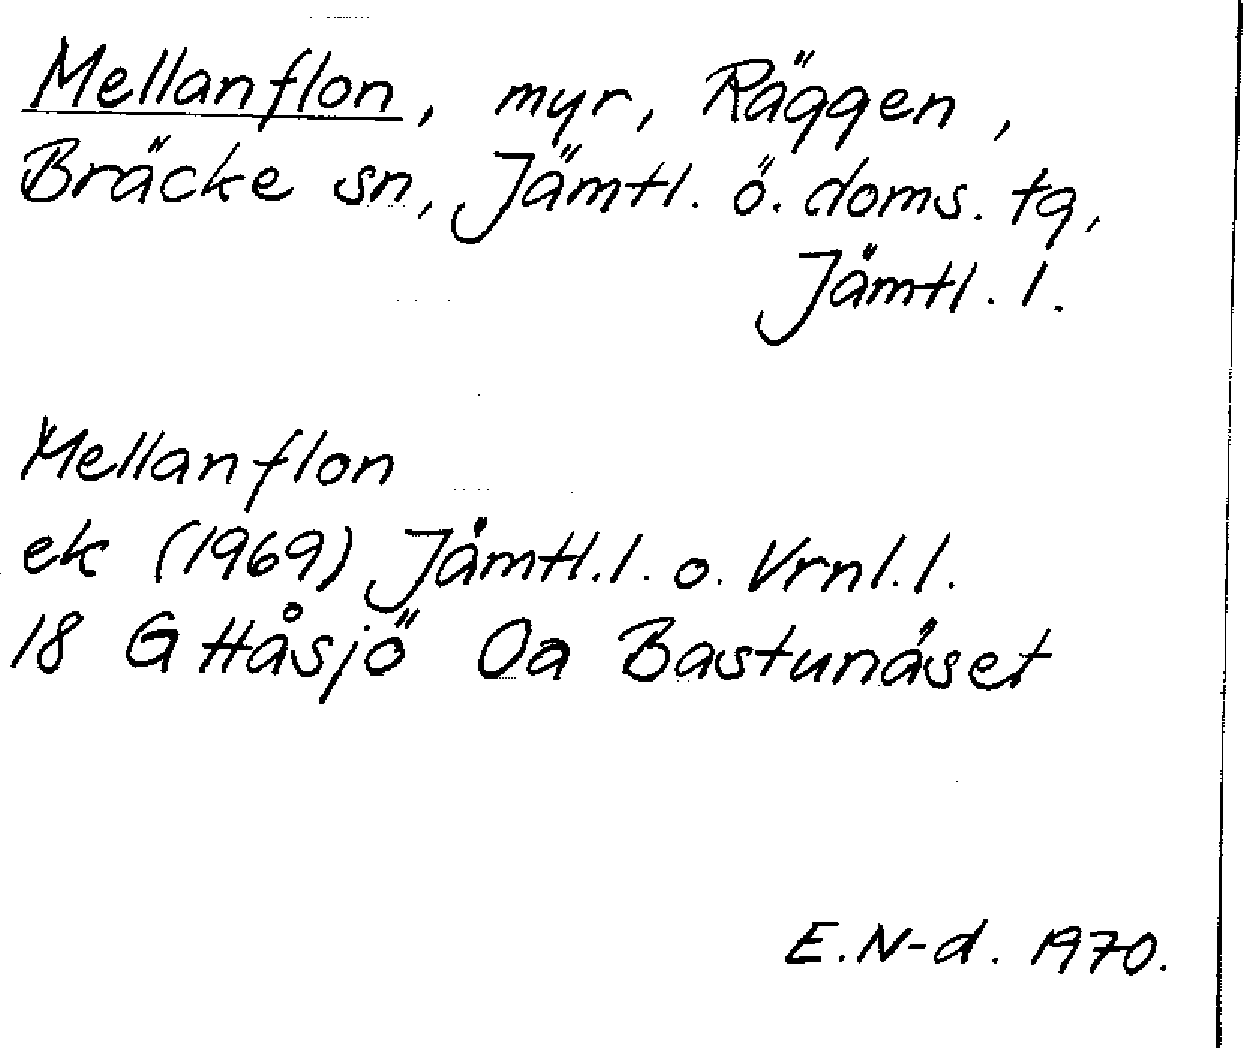 Mellanflon, myr, Räggen,
Bräcke sn, Jämtl. ö. doms. tg,
Jämtl. l.
Mellanflon
ek (1969) Jämtl. l. o. Vrnl. l.
18 G Håsjö Oa Bastunäset
E. N-d. 1970.